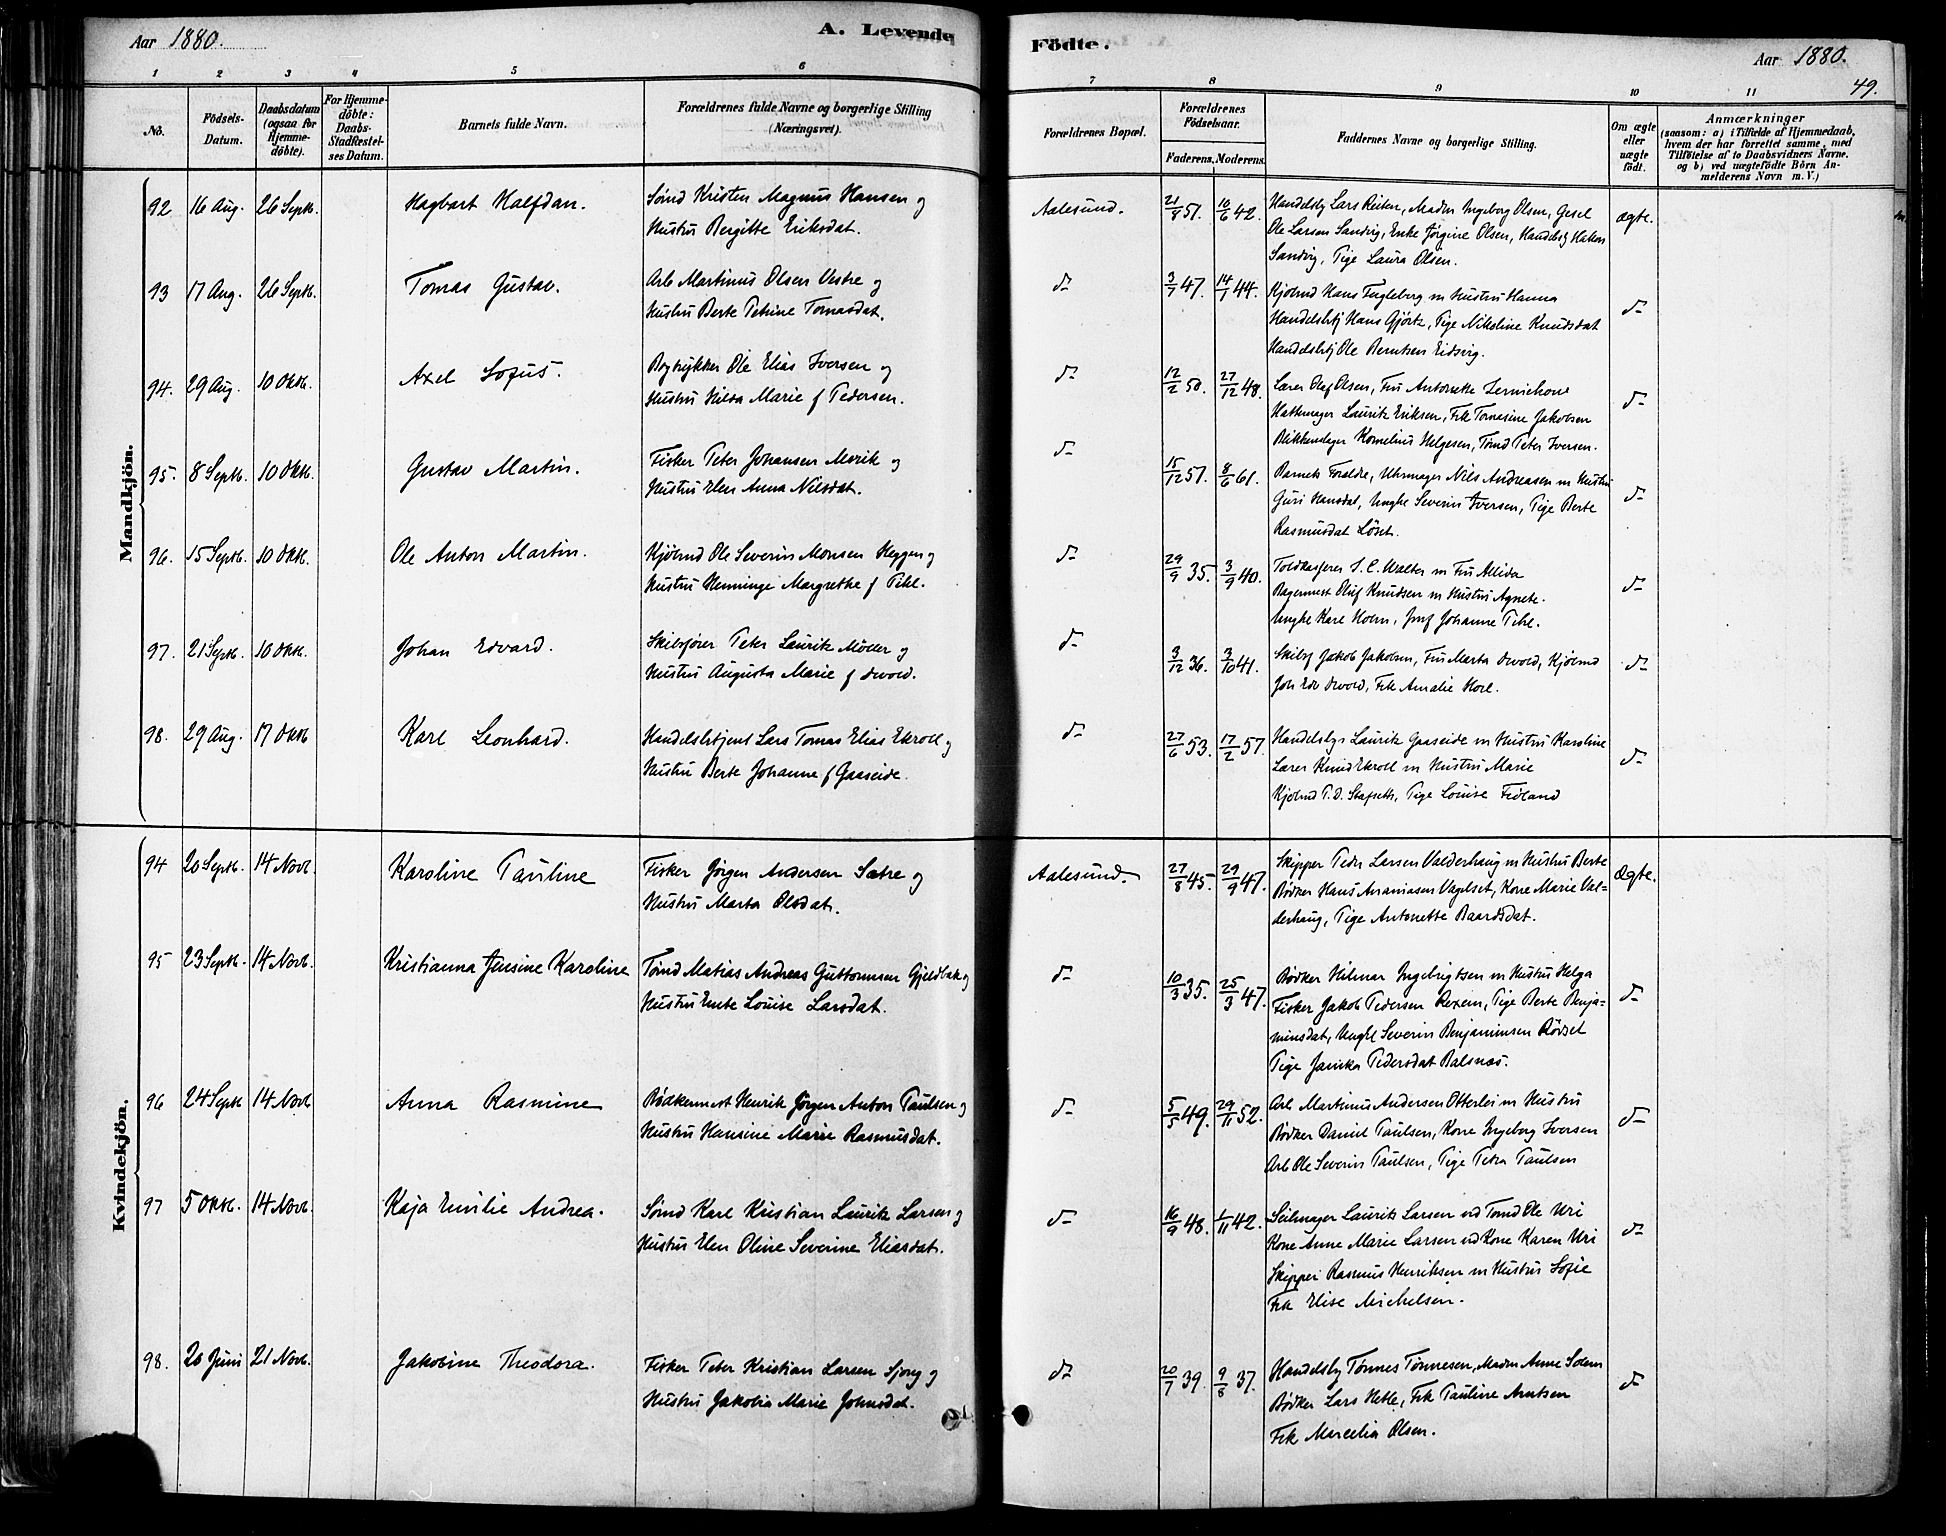 Aar 1880.
A. Levende
Födte.
Aar 1880.
49.
1 2 3 4 5 6 7 8 9 10 11
No.
Födsels-
Datum.
Daabsdatum
(ogsaa for
Hjemme-
döbte).
For Hjemme-
döbte:
Daabs-
Stadfæstel-
ses Datum.
Barnets fulde Navn.
Forældrenes fulde Navne og borgerlige Stilling
(Næringsvei).
Forældrenes Bopæl.
Forældrenes
Födselsaar.
Faderens. Moderens.
Faddernes Navne og borgerlige Stilling.
Om ægte
eller
uægte
födt.
Anmærkninger
(saasom: a) i Tilfælde af Hjemmedaab,
hvem der har forrettet samme, med
Tilföielse af to Daabsvidners Navne.
og b) ved uægtefödte Börn An-
melderens Navn m. V.)
Mandkjön.
92 16 Aug. 26 Septb. Hagbart Halfdan. Sømd Kristen Magnus Hansen og
Hustru Bergitte Eriksdat.
Aalesund. 21/9 51. 10/6 42. Handelsb Lars Reiten, Madm Ingeborg Olsen, Gesel
Ole Larsen Sandvig, Enke Jørgine Olsen, Handelsb Hakon
Sandvig, Pige Laura Olsen.
ægte.
93 17 Aug. 26 Septb. Tomas Gustav. Arb Martinus Olsen Vestre og
Hustru Berte Petrine Tomasdat.
do 3/7 47. 14/1 44. Kjøbmd Hans Fugleberg m Hustru Hanna
Handelsbtj Hans Gjørtz, Pige Nikoline Knudsdat
Handelsbtj Ole Berntsen Eidsvig.
do
94. 29 Aug. 10 Oktb. Axel Sofus. Bogtrykker Ole Elias Iversen og
Hustru Hilda Marie f Pedersen.
do 12/2 50. 27/12 48. Lærer Oluf Olsen, Fru Antonette
Hattemager Lauritz Eriksen, Frk Tomasine Jakobsen
Blikkenslager Kornelius Helgesen, Tømd Peter Iversen.
do
95. 8 Septb. 10 Oktb. Gustav Martin. Fisker Peter Johansen Myrik og
Hustru Elen Anna Nilsdat.
do 15/12 57. 8/6 61. Barnets Forældre, Uhrmager Nils Andreasen m Hustru
Guri Hansdat, Ungkl Severin Iversen, Pige Berte
Rasmusdat Løset.
do
96. 15 Septb. 10 Oktb. Ole Anton Martin. Kjøbmd Ole Severin Monsen Heggen og
Hustru Henninge Margrethe f Pihl.
do 29/9 35. 3/9 40. Toldkasserer S. C. Walter m Fru Allida
Bagermest Oluf Knudsen m Hustru Agnete.
Ungkl Karl Holm, Jmf Johanne Pihl.
do
97. 21 Septb. 10 Oktb. Johan Edvard. Skibsfører Peter Lauritz Møller og
Hustru Augusta Marie f Devold.
do 3/12 36. 3/10 41. Skibsf Jakob Jakobsen, Fru Marta Devold, Kjøbmd
Joh Edv Devold, Frk Amalie Hoel.
do
98. 29 Aug. 17 Oktb Karl Leonhard. Handelsbtjent Lars Tomas Elias Ekroll og
Hustru Berte Johanne f Gaaseide.
do 27/6 53. 17/2 57. Handelsbgs Lauritz Gaaseide m Hustru Karoline
Lærer Knud Ekroll m Hustru Marie
Kjøbmd P. D. Stafseth, Pige Louise Fidland
do
Kvindekjön.
94 20 Septb. 14 Novb. Karoline Pauline Fisker Jørgen Andersen Sætre og
Hustru Marta Olsdat.
Aalesund. 27/8 45. 29/9 47. Skipper Peder Larsen Valderhaug m Hustru Berte
Bødker Hans Ananiasen Vagelset, Kone Marie Val=
derhaug, Pige Antonette Baardsdat.
Ægte.
95 23 Septb. 14 Novb. Kristianna Jensine Karoline Tømd Matias Andreas Guttormsen Gjeldbak og
Hustru Ente Louise Larsdat.
do 10/3 35. 25/3 47. Bødker Hilmar Ingebrigtsen m Hustru Helga
Fisker Jakob Pedersen Rexem, Pige Berte Benja=
minsdat, Ungkl Severin Benjaminsen Rødset
Pige Janika Pedersdat Balsnæs.
do
96 24 Septb 14 Novb. Anna Rasmine Bødkermest Henrik Jørgen Anton Paulsen og
Hustru Hansine Marie Rasmusdat.
do 5/5 49. 29/11 52. Arb Martinus Andersen Otterlei m Hustru
Bødker Daniel Paulsen, Kone Ingeborg Iversen
Arb Ole Severin Paulsen, Pige Petra Paulsen
do
97 5 Oktb. 14 Novb. Kaja Emilie Andrea. Sømd Karl Kristian Lauritz Larsen og
Hustru Elen Oline Severine Eliasdat.
do 16/9 48. 1/11 42. Seilmager Lauritz Larsen ved Tømd Ole Uri
Kone Anne Marie Larsen ved Kone Karen Uri
Skipper Rasmus Henriksen m Hustru Sofie
Frk Elise Michelsen.
do
98. 20 Juni 21 Novb. Jakobine Theodora. Fisker Peter Kristian Larsen Sjong og
Hustru Jakobia Marie Johnsdat.
do 20/7 39. 9/8 37. Handelsb Tønnes Tønnesen, Madm Anne Solem
Bødker Lars Hetle, Frk Pauline Arntsen
Frk Marcelia Olsen.
do